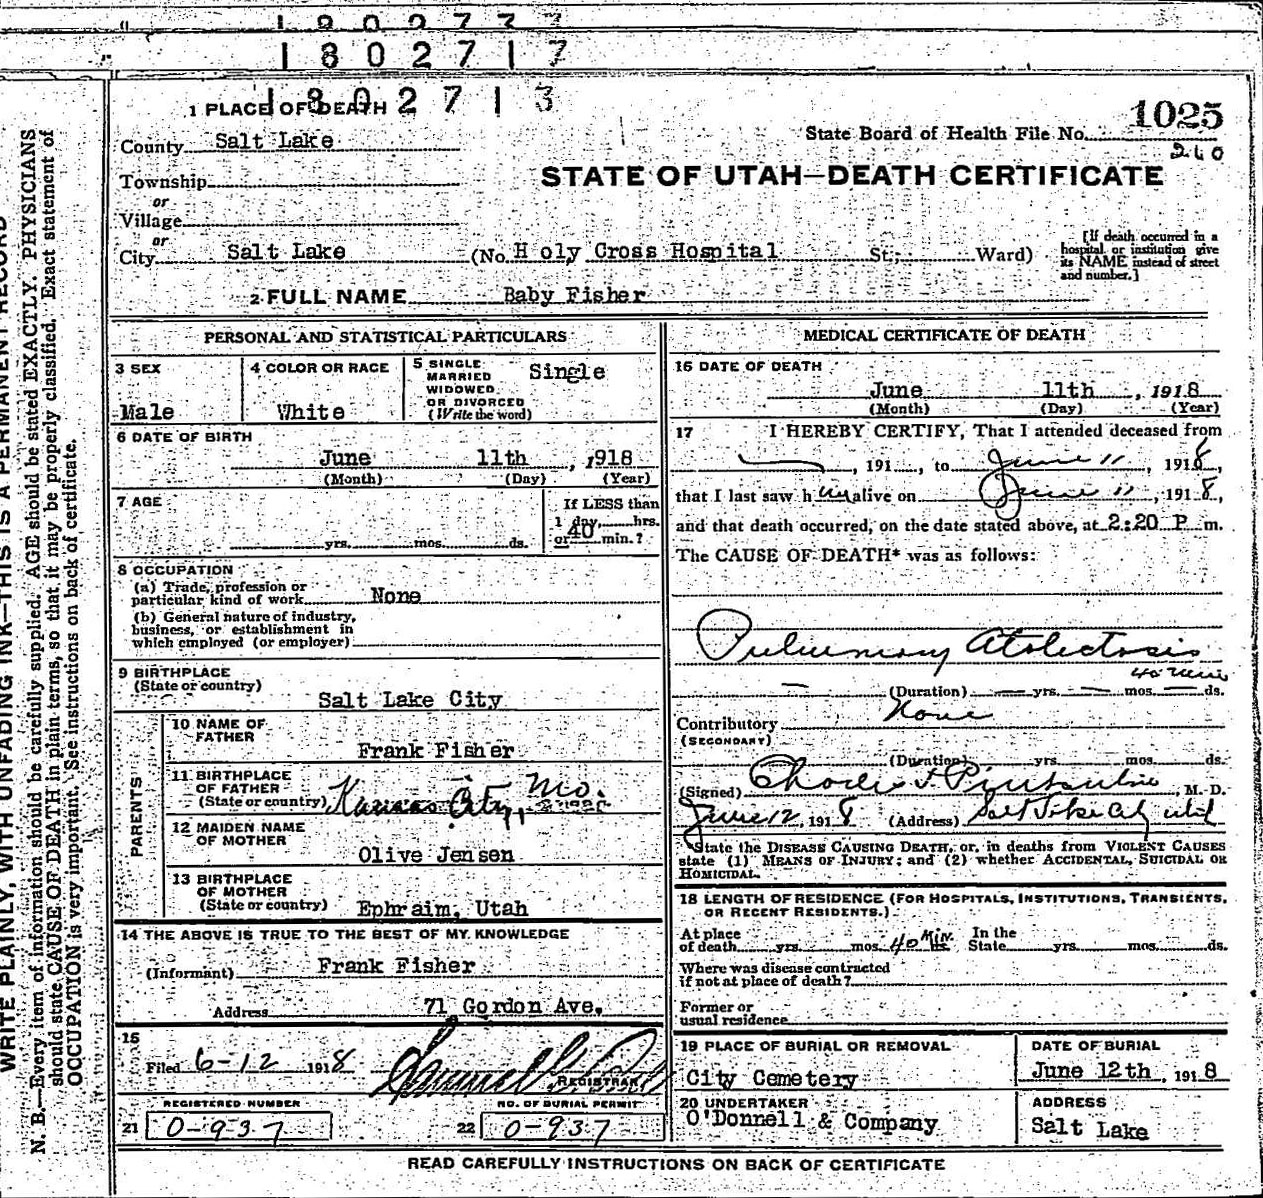 1802717
1802713
1 PLACE OF DEATH
State Board of Health File No. 1025
260
County Salt Lake
STATE OF UTAH—DEATH CERTIFICATE
Township
or
Village
or
City Salt Lake (No. Holy Cross Hospital St.; Ward)
[If death occurred in a
hospital or institution give
its NAME instead of street
and number.]
2 FULL NAME Baby Fisher
PERSONAL AND STATISTICAL PARTICULARS
3 SEX
Male
4 COLOR OR RACE
White
5 SINGLE
MARRIED
WIDOWED
OR DIVORCED
(Write the word)
Single
6 DATE OF BIRTH
June 11th, 1918
(Month) (Day) (Year)
7 AGE
yrs. mos. ds.
If LESS than
1 day, hrs.
or 40 min.?
8 OCCUPATION
(a) Trade, profession or
particular kind of work None
(b) General nature of industry,
business, or establishment in
which employed (or employer)
9 BIRTHPLACE
(State or country)
Salt Lake City
PARENTS
10 NAME OF
FATHER
Frank Fisher
11 BIRTHPLACE
OF FATHER
(State or country) Kansas City, Mo.
12 MAIDEN NAME
OF MOTHER
Olive Jensen
13 BIRTHPLACE
OF MOTHER
(State or country) Ephraim, Utah
14 THE ABOVE IS TRUE TO THE BEST OF MY KNOWLEDGE
(Informant) Frank Fisher
Address 71 Gordon Ave.
15
Filed 6-12 1918
REGISTRAR
REGISTERED NUMBER
21 0-937
NO. OF BURIAL PERMIT
22 0-937
MEDICAL CERTIFICATE OF DEATH
16 DATE OF DEATH
June 11th, 1918
(Month) (Day) (Year)
17 I HEREBY CERTIFY, That I attended deceased from
, 191 , to June 11, 1918,
that I last saw h im alive on June 11, 1918,
and that death occurred, on the date stated above, at 2:20 P m.
The CAUSE OF DEATH* was as follows:
Pulmonary Atolectosis
40 min
(Duration) yrs. mos. ds.
Contributory None
(SECONDARY)
(Duration) yrs. mos. ds.
(Signed) Charles F. , M. D.
June 12, 1918 (Address) Salt Lake City Utah
*State the DISEASE CAUSING DEATH, or, in deaths from VIOLENT CAUSES
state (1) MEANS OF INJURY; and (2) whether ACCIDENTAL, SUICIDAL OR
HOMICIDAL.
18 LENGTH OF RESIDENCE (FOR HOSPITALS, INSTITUTIONS, TRANSIENTS,
OR RECENT RESIDENTS.)
At place
of death yrs. mos. 40 Min. In the
State yrs. mos. ds.
Where was disease contracted
if not at place of death?
Former or
usual residence
19 PLACE OF BURIAL OR REMOVAL
City Cemetery
DATE OF BURIAL
June 12th, 1918
20 UNDERTAKER
O'Donnell & Company
ADDRESS
Salt Lake
READ CAREFULLY INSTRUCTIONS ON BACK OF CERTIFICATE
WRITE PLAINLY, WITH UNFADING INK—THIS IS A PERMANENT RECORD
N. B.—Every item of information should be carefully supplied. AGE should be stated EXACTLY. PHYSICIANS
should state CAUSE OF DEATH in plain terms, so that it may be properly classified. Exact statement of
OCCUPATION is very important. See instructions on back of certificate.